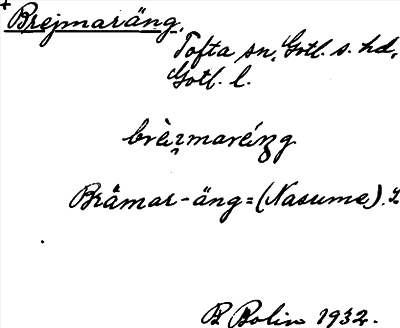 +
Brejmaräng.
Tofta sn, Gotl. s. hd,
Gotl. l.
Bråmar-äng=(Nasume)
B Bolin 1932.